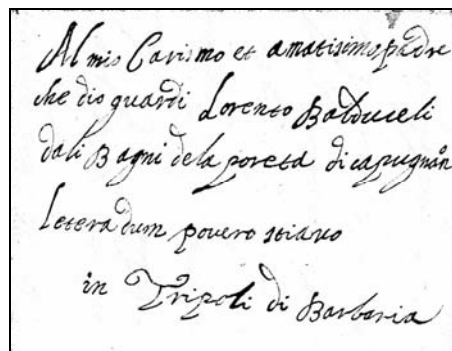 Al mio Carismo et amatisimo padre
che dio guardi Lorenso Balduceli
dali Bagni dela poreta di capugnan
letera dum povero stiavo
in Tripoli di Barbaria